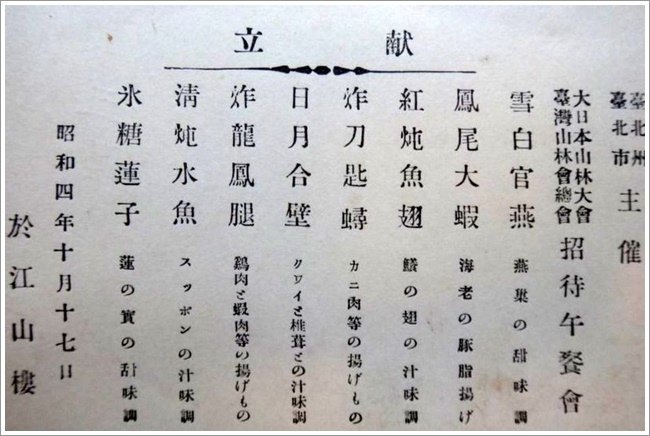 臺北州
臺北市
主催
大日本山林大會
臺灣山林會總會
招待午餐會
献立
雪白官燕 燕巢の甜味調
鳳尾大蝦 海老の豚脂揚げ
紅炖魚翅 鱶の翅の汁味調
炸刀匙蟳 カニ肉等の揚げもの
日月合壁 クワイと椎茸との汁味調
炸龍鳳腿 鷄肉と蝦肉等の揚げもの
清炖水魚 スッポンの汁味調
氷糖蓮子 蓮の實の甜味調
昭和四年十月十七日
於江山樓